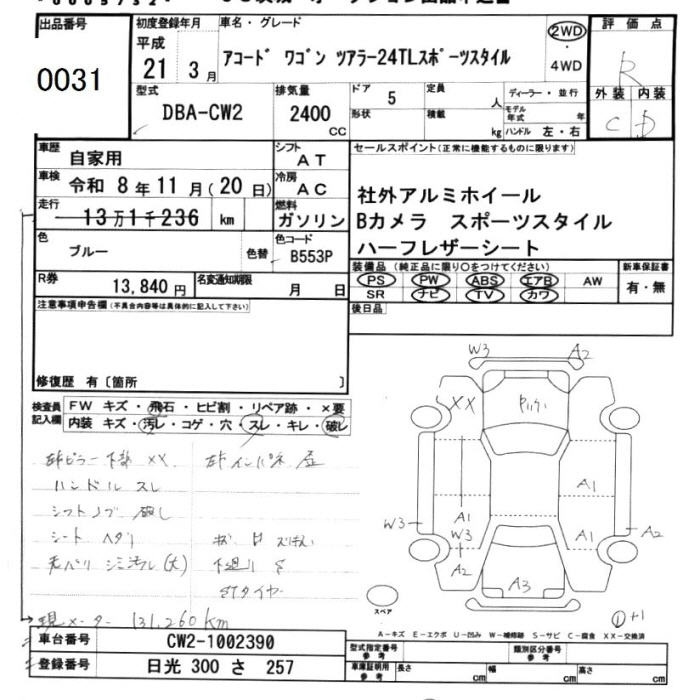 出品番号
0031
初度登録年月
平成
21 3 月
車名・グレード
アコード ワゴン ツアラー24TLスポーツスタイル
2WD
・
4WD
評価点
R
外装 内装
C D
型式
DBA-CW2
排気量
2400
CC
ドア
5
形状
定員
人
積載
kg
ディーラー・並行
モデル年式
年
ハンドル 左・右
車歴
自家用
シフト
AT
車検
令和 8年11月(20日)
冷房
AC
走行
13万1千236 km
燃料
ガソリン
色
ブルー
色替
色コード
B553P
R券
13,840円
名変通知期限
月 日
セールスポイント(正常に機能するものに限ります)
社外アルミホイール
Bカメラ スポーツスタイル
ハーフレザーシート
装備品 (純正品に限り〇をつけてください)
PS PW ABS エアB AW
SR ナビ TV カワ
新車保証書
有・無
後日品
注意事項申告欄(不具合内容等は具体的に記入して下さい)
修復歴 有〔箇所 〕
検査員
記入欄
FW キズ・飛石・ヒビ割・リペア跡・×要
内装 キズ・汚レ・コゲ・穴・スレ・キレ・破レ
ハンドル スレ
シフトノブ 破レ
シート ヘタリ
下廻りS
STタイヤ
現メーター 131,260km
W3 A2
XX
A1
A1
A1
W3
W3
A2
A2
A3
スペア
①+1
A-キズ E-エクボ U-凹み W-補修跡 S-サビ C-腐食 XX-交換済
車台番号
CW2-1002390
登録番号
日光 300 さ 257
型式指定番号
参考
類別区分番号
参考
車庫証明用
参考
長さ cm 幅 cm 高さ cm